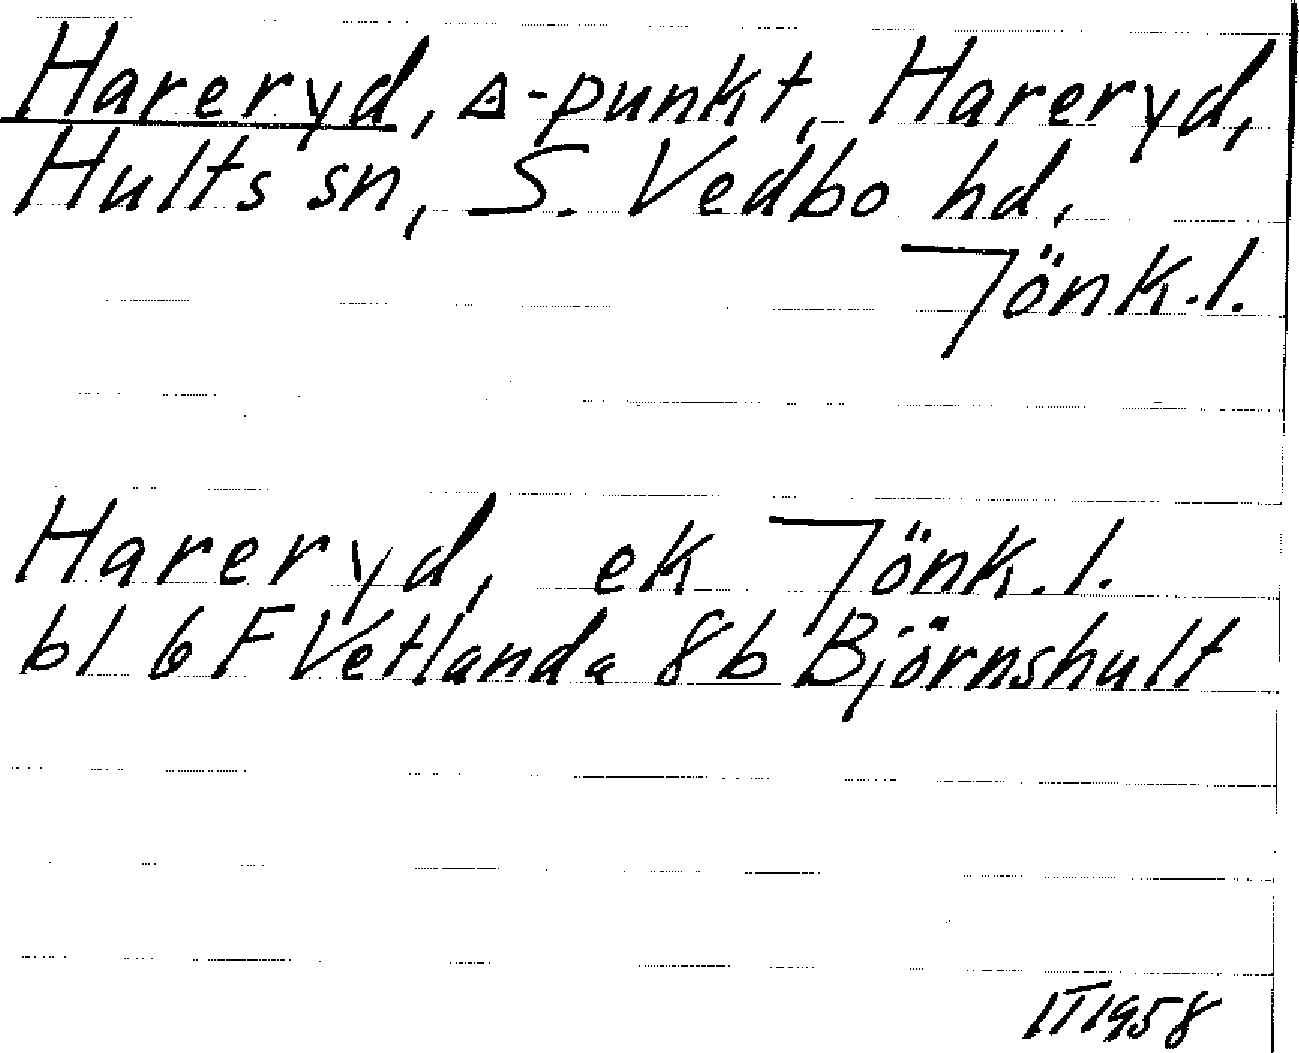 Hareryd, ⟁-punkt, Hareryd,
Hults sn, S. Vedbo hd,
Jönk.l.
Hareryd, ek Jönk.l.
bl 6 F Vetlanda 8b Björnshult
IT1958